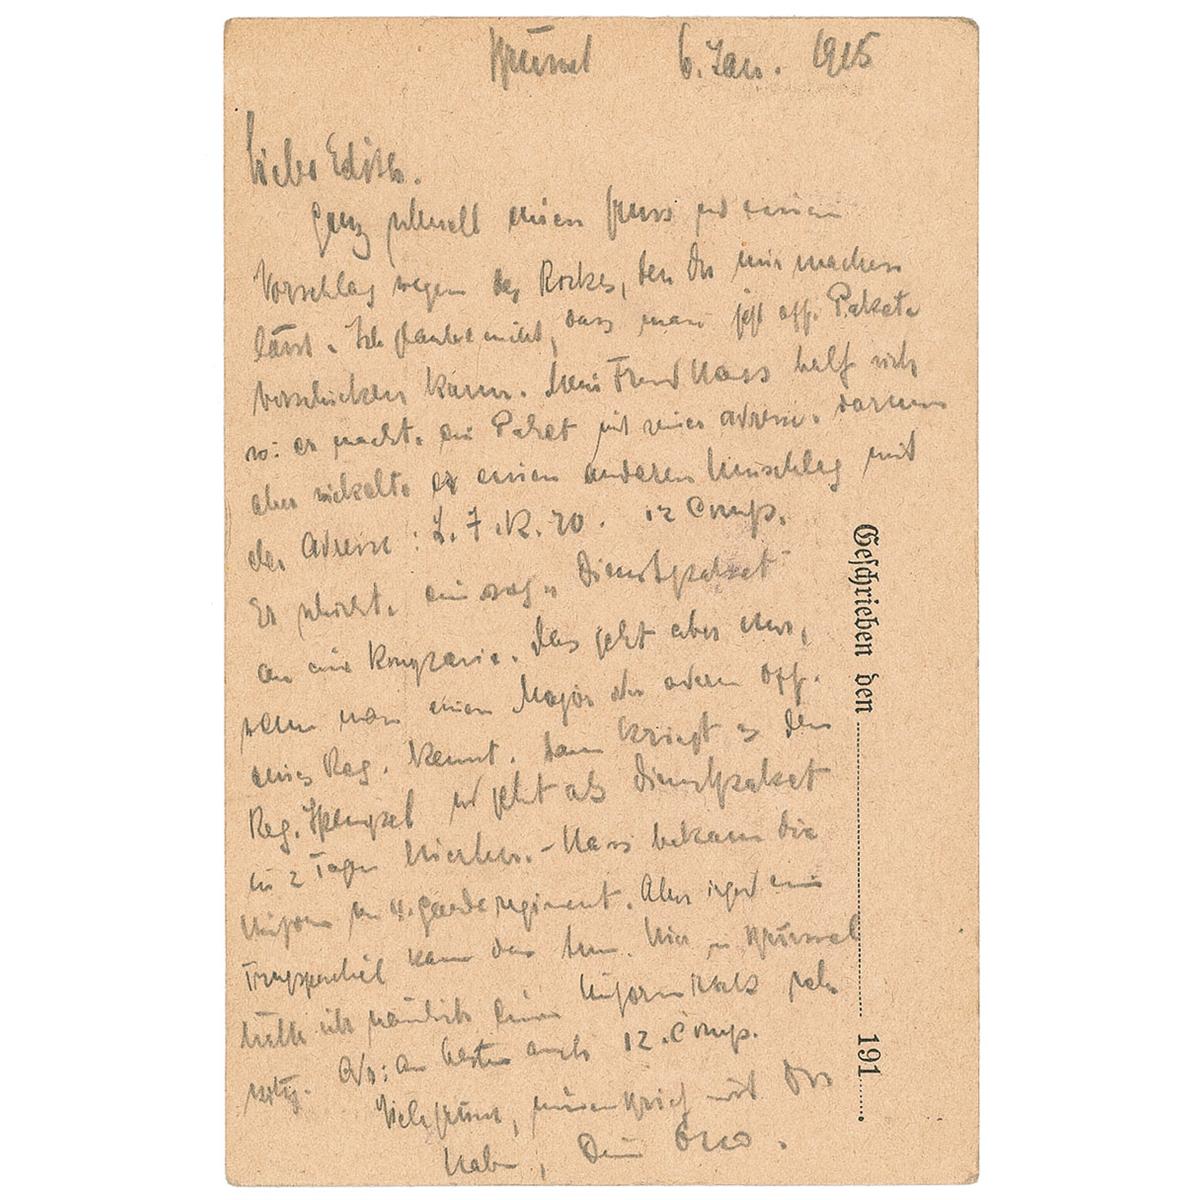 Brüssel 6. Jan. 1915
Liebe Edith.
Ganz schnell einen Gruss und einen
Vorschlag wegen des Rockes, den Du mir machen
lässt. Ich glaube nicht, dass man jetzt off. Pakete
verschicken kann. Mein Freund Nass half sich
so: er machte ein Paket mit seiner Adresse. Darum
aber wickelte er einen anderen Umschlag mit
der Adresse: L. I. R. 20. 12 Comp.
Er schickte ein sog. Dienstpaket
an eine Kompanie. Das geht aber nur,
wenn man einen Major oder anderen Off.
eines Reg. kennt. Dann kriegt es den
Reg. Stempel und geht als Dienstpaket
in 2 Tagen hierher. – Nass bekam die
Uniform vom 4. Garderegiment. Aber irgend ein
Truppenteil kann das tun. Hier in Brüssel
hätte ich nämlich einen Uniformrock sehr
nötig. Also: am besten auch 12. Comp.
Viele Grüsse, mein Brief wirst Du
haben, Dein Otto.
Geschrieben den 191